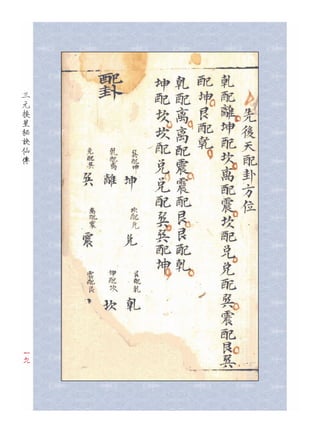 先後天配卦方位
乾配離坤配坎離配震坎配兌兌配巽震配艮巽
配坤艮配乾
乾配離離配震震配艮艮配乾
坤配坎坎配兌兌配巽巽配坤
配卦
巽配坤 坤
坎配兌 兌
艮配乾 乾
乾配離 離
坤配坎 坎
兌配巽 巽
離配震 震
震配艮
三元挨星秘訣仙傳
一九